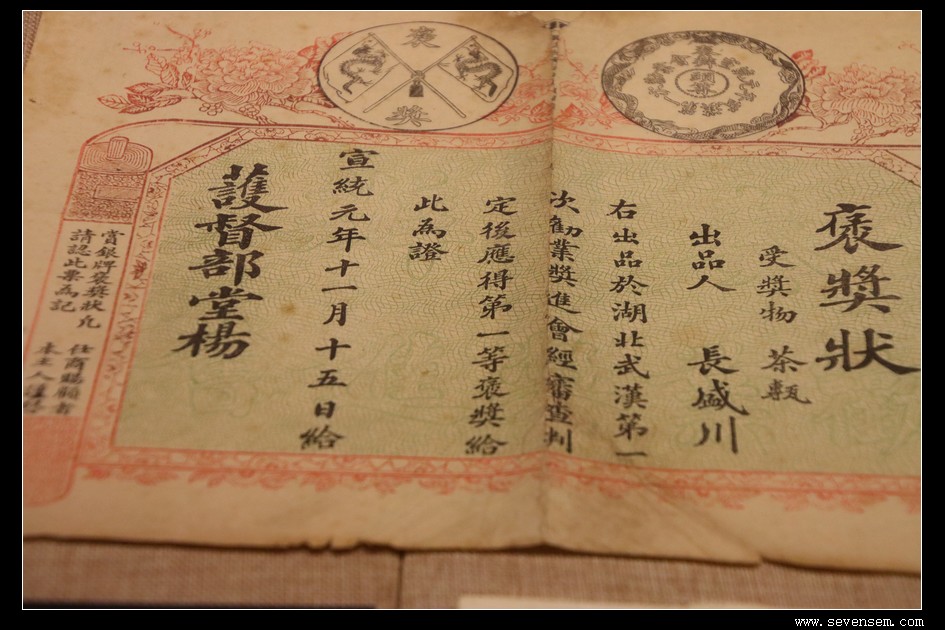 褒獎
褒獎狀
受獎物 茶甎
出品人 長盛川
右出品於湖北武漢第一
次勸業獎進會經審查判
定後應得第一等褒獎給
此為證
宣統元年十一月十五日給
護督部堂楊
賞銀牌褒獎狀凡 仕商賜顧者
請認此票為記 本主人謹啓
www.sevensem.com